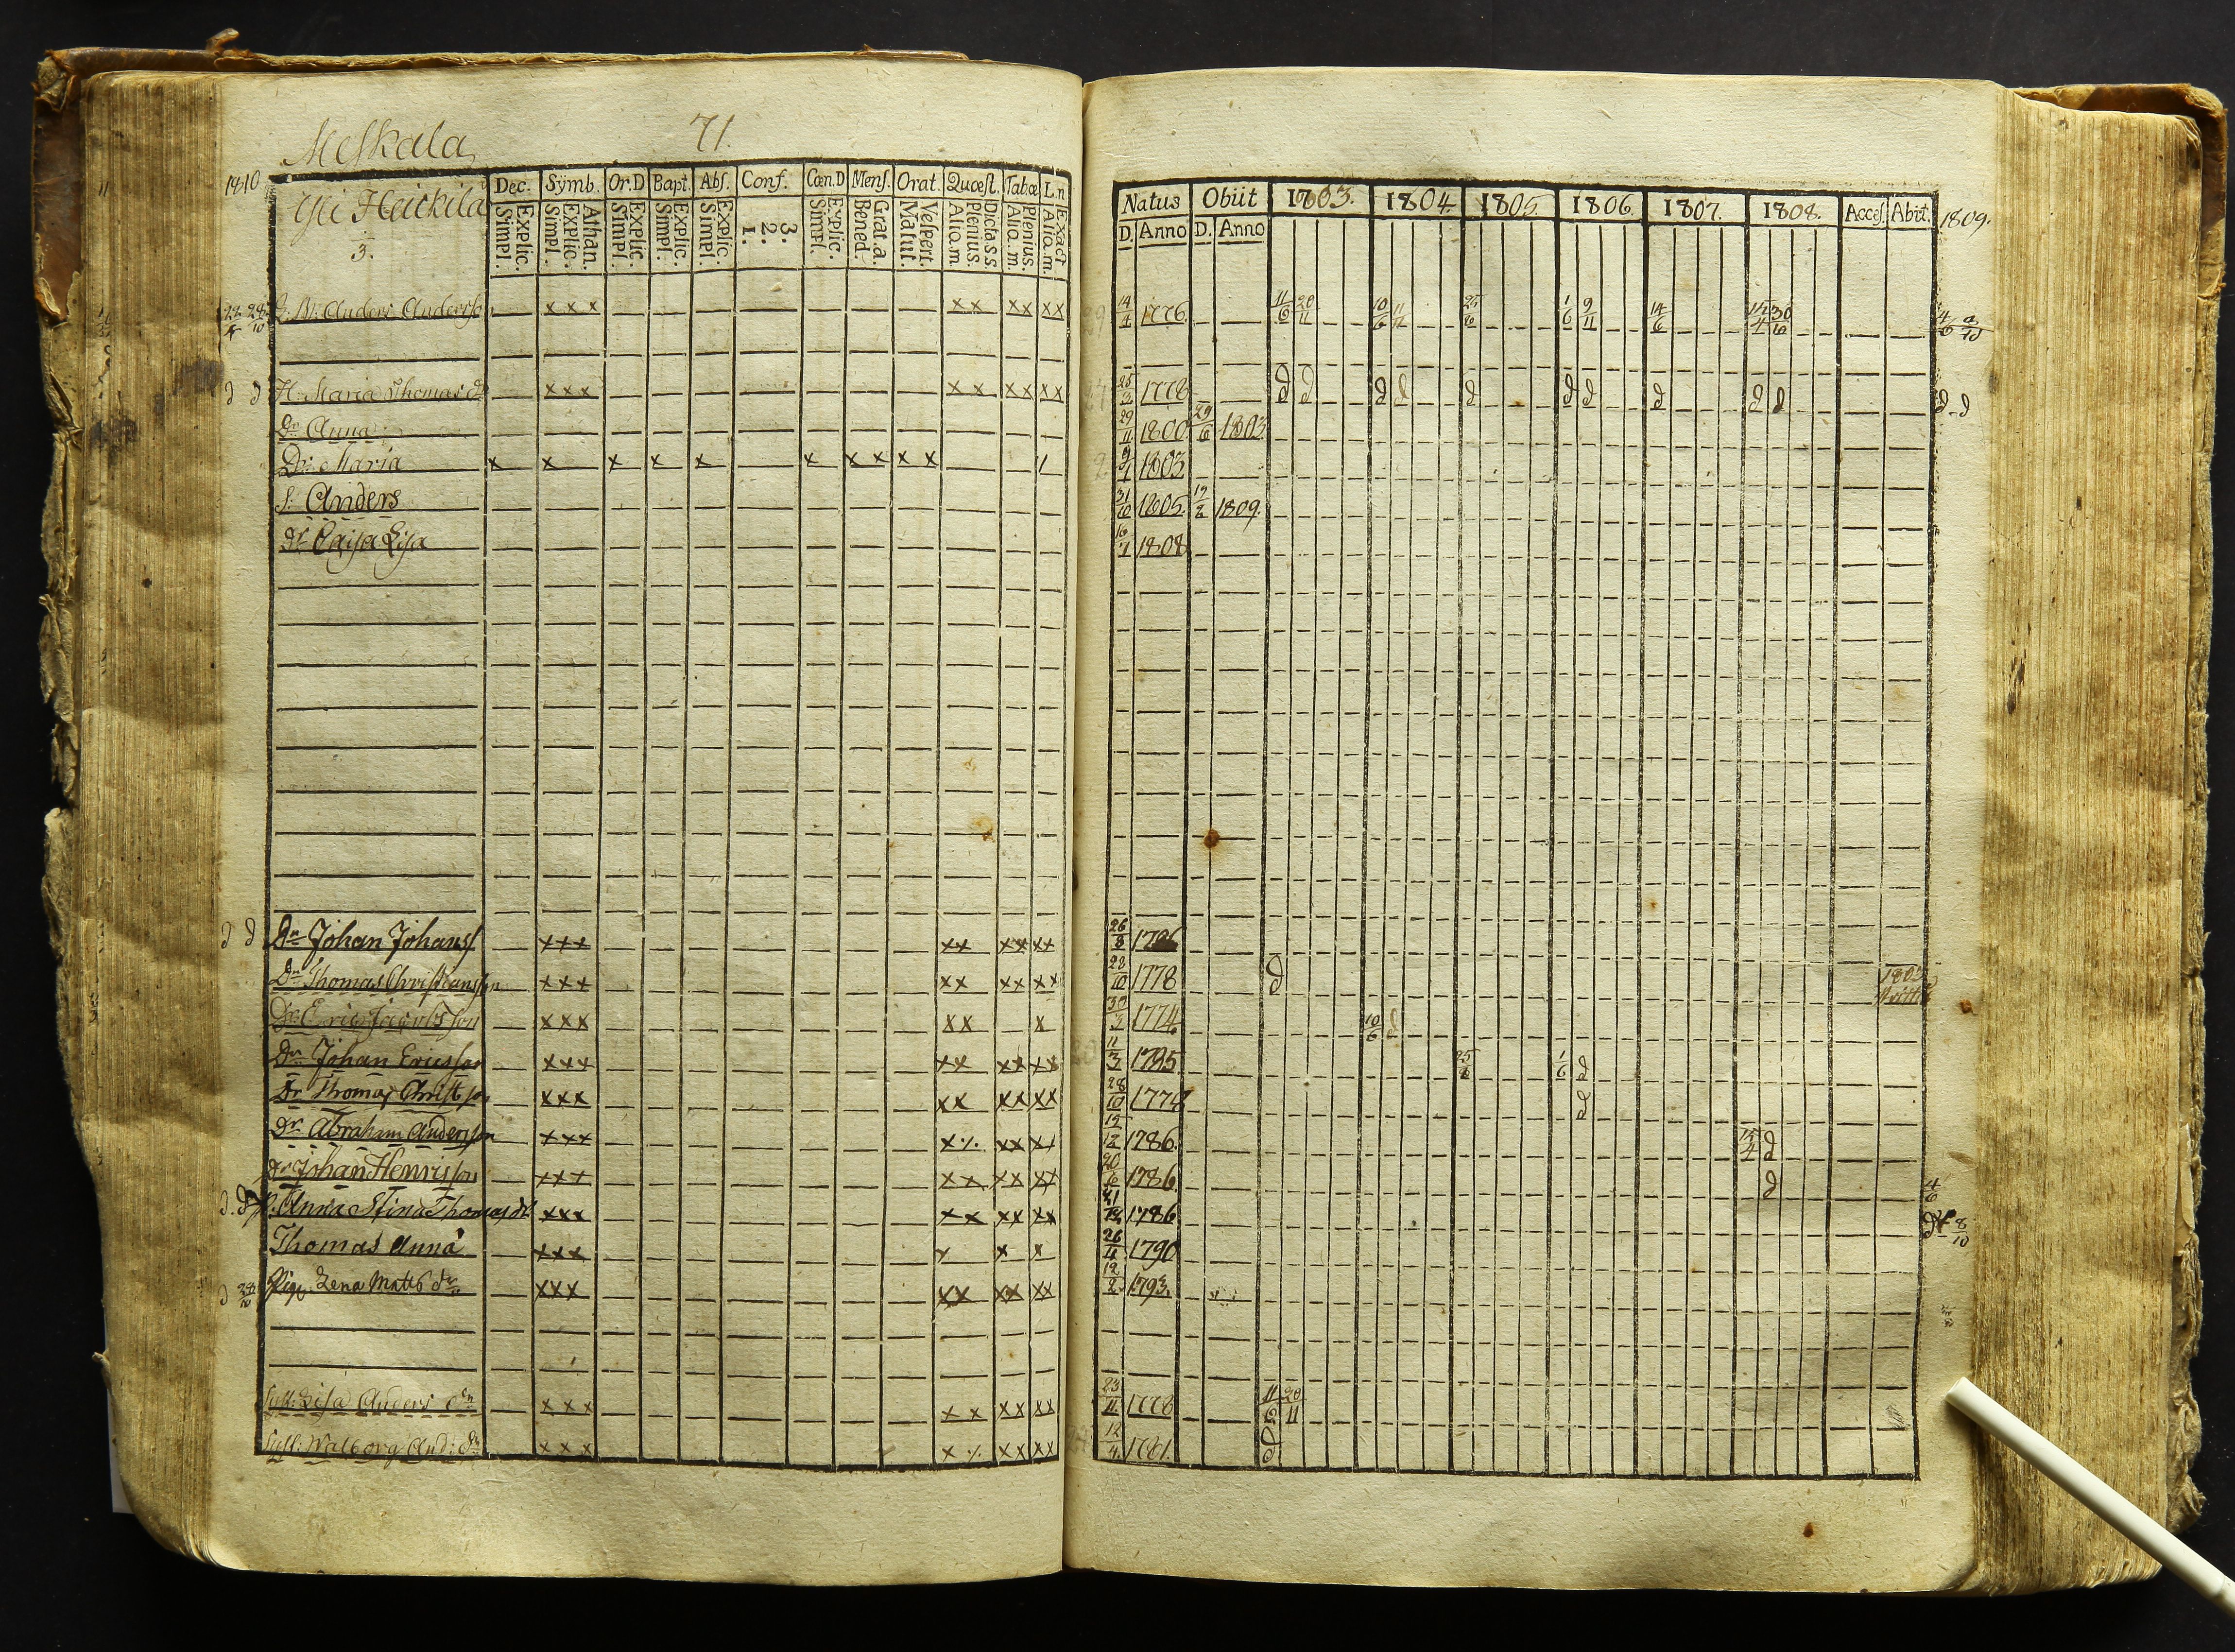 Meskala 71.
1810
Yli Heickilä
3.
Dec. Symb. Or.D Bapt. Abs. Conf. Cœn.D Mens. Orat. Quæst. Tabæ L n
Explic. Simpl. Athan. Explic. Simpl. Explic. Simpl. Explic. Simpl. Explic. Simpl. 3. 2. 1. Explic. Simpl. Grat.a. Bened. Vespert. Matut. Dicta S.S. Plenius. Alio.m. Plenius. Alio.m. Exact Alio.m.
Natus Obiit 1803. 1804. 1805. 1806. 1807. 1808. Acces. Abit. 1809.
D. Anno D. Anno
Anders Andersso x x x x x x x x x 14/4 1776 11/6 20/11 10/6 11/11 25/6 1/6 9/11 14/6 30/6
d d H. Maria Thomas dr x x x x x x x x x 25/3 1778 d d d d d d d d d d d d
Dr Anna 29/11 1800 29/6 1803
Dr: Maria x x x x x x x x x x 9/4 1803
S: Anders 31/10 1805. 19/2 1809.
dr Caisa Lisa 16/7 1808
d d Dn Johan Johanss x x x x x x x x x 26/8
Dn Thomas Christiansson x x x x x x x x x 28/10 1778 d
Dr: Eric Jacobsson x x x x x x 1774 10/6 d
Dn Johan Ericsson x x x x x x x x x 11/3 1795 25/6 1/6 d
Dr Thomas Christson x x x x x x x x x 28/10 1778 d
Dr Abraham Andersson x x x x ./. x x x x 1786. d
dr Johan Henricsson x x x x x x x x x 1786 d
Anna Stina Thomas dr x x x x x x x x x 1786 8/10
Thomas Anna x x x x x x 1790
Pig. Lena Matts dr x x x x x x x x x 12/2 1793.
Lisa Anders dr x x x x x x x x x 23/11 1778 11/6 20/11
Walborg And: dr x x x x ./. x x x x 12/4 1781. d